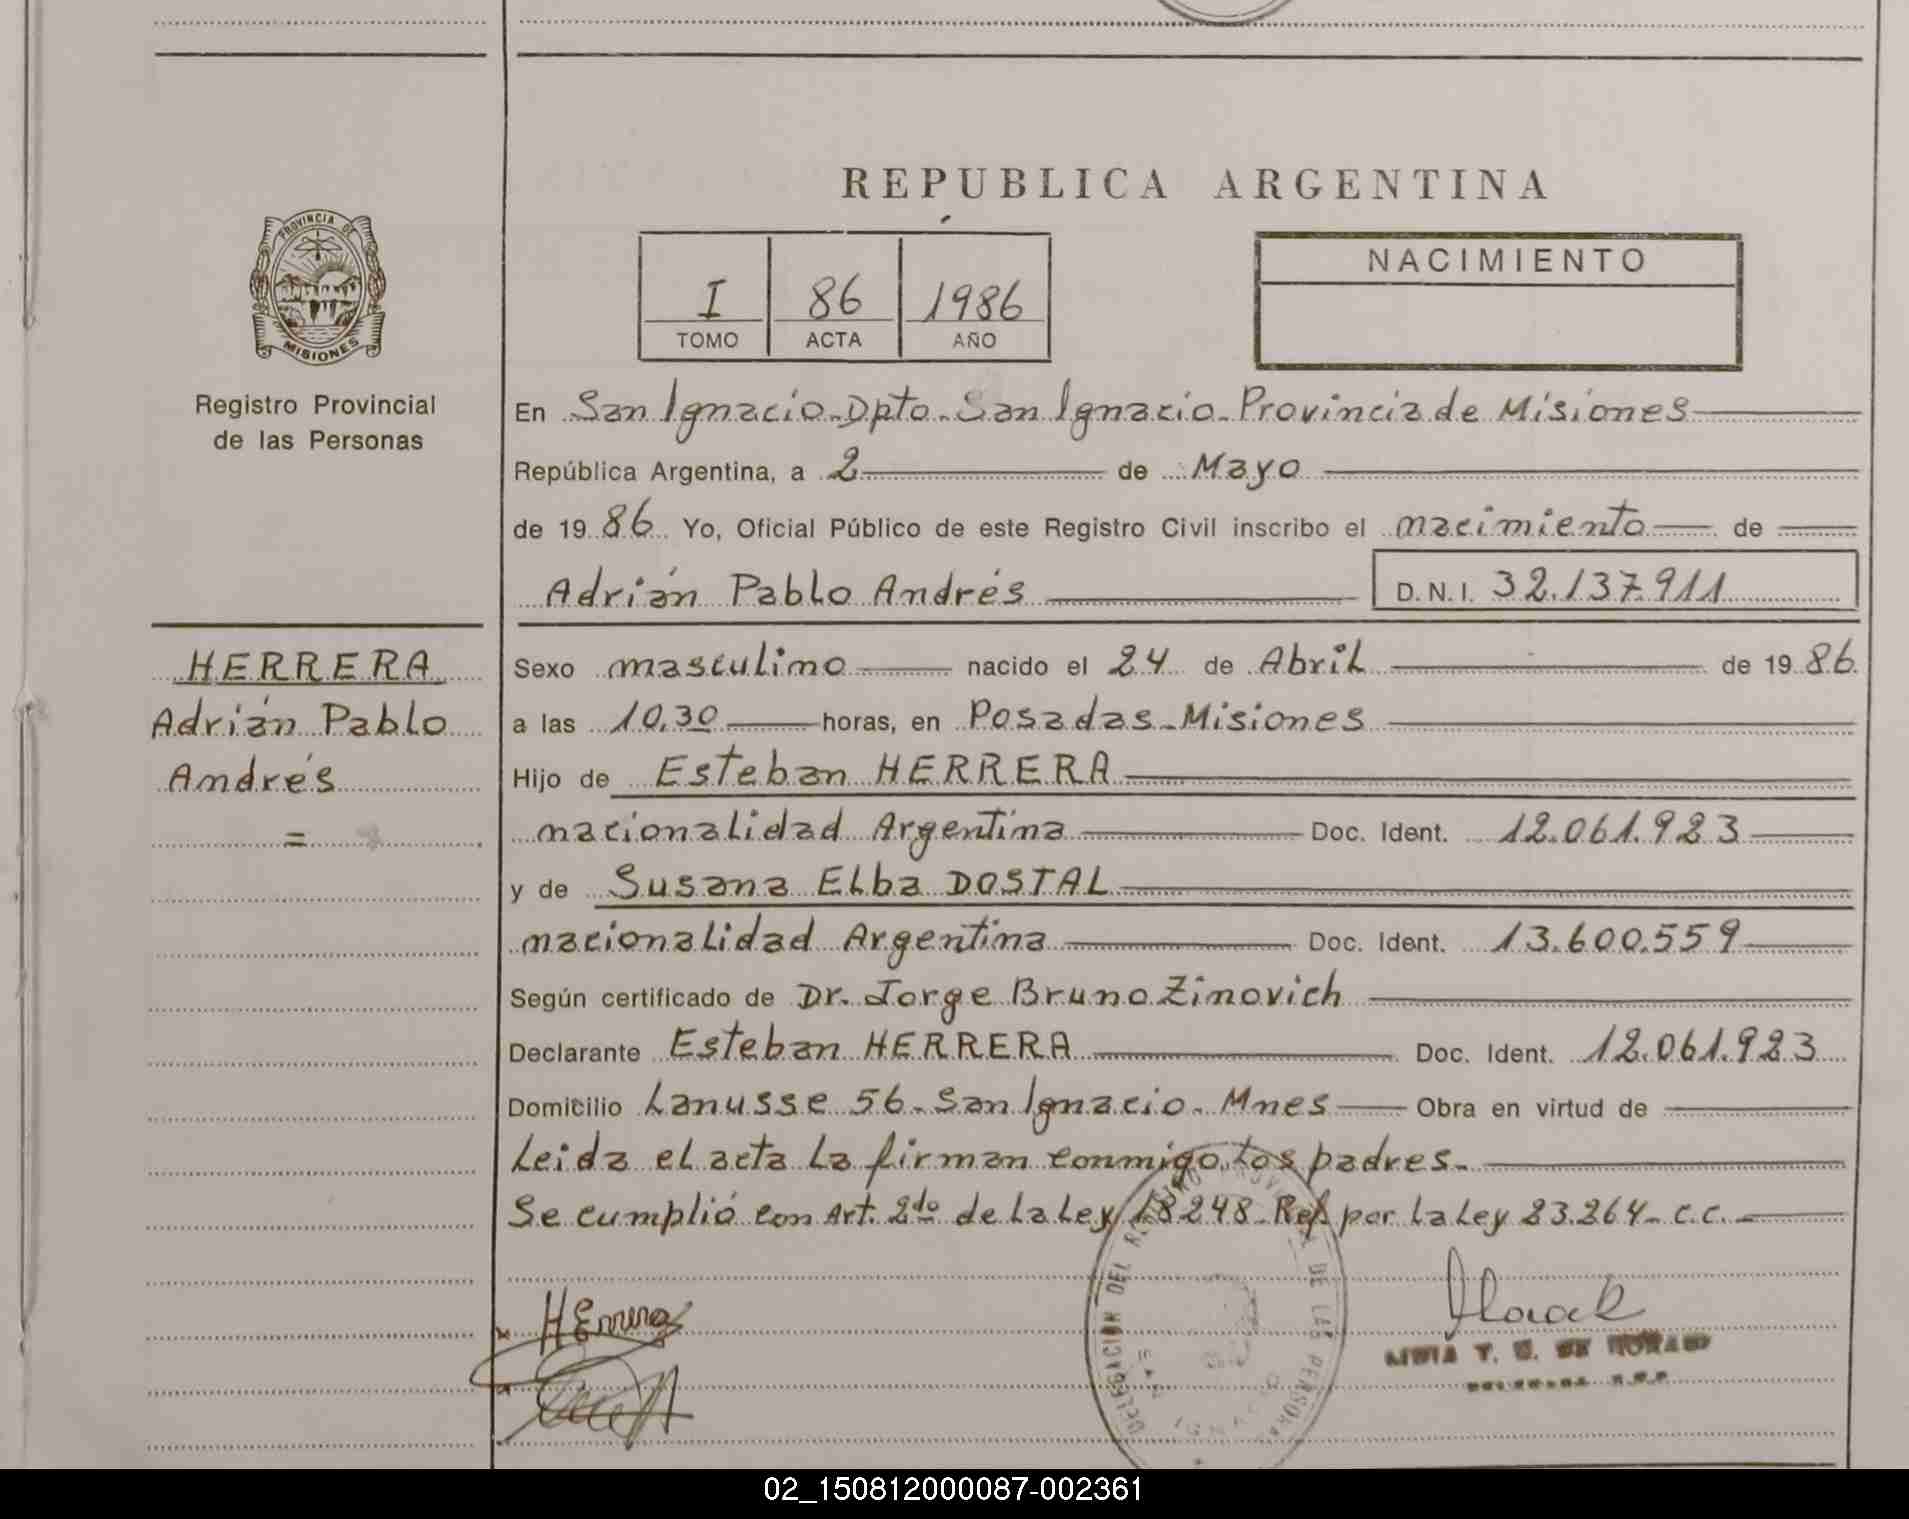 REPUBLICA ARGENTINA
PROVINCIA DE
MISIONES
Registro Provincial
de las Personas
I 86 1986
TOMO ACTA AÑO
NACIMIENTO
En San Ignacio - Dpto. San Ignacio - Provincia de Misiones
República Argentina, a 2 de Mayo
de 19 86 Yo, Oficial Público de este Registro Civil inscribo el nacimiento de
Adrián Pablo Andrés D.N.I. 32.137.911
HERRERA
Adrián Pablo
Andrés
=
Sexo masculino nacido el 24 de Abril de 19 86
a las 10.30 horas, en Posadas - Misiones
Hijo de Esteban HERRERA
nacionalidad Argentina Doc. Ident. 12.061.923
y de Susana Elba DOSTAL
nacionalidad Argentina Doc. Ident. 13.600.559
Según certificado de Dr. Jorge Bruno Zimovich
Declarante Esteban HERRERA Doc. Ident. 12.061.923
Domicilio Lanusse 56 - San Ignacio - Mnes Obra en virtud de
Leida el acta la firman conmigo, los padres.-
Se cumplió con Art. 2do de la Ley 18248 - Ref. por la Ley 23.264 - C.C. -
HErrera
DELEGACION DEL REGISTRO DE LAS PERSONAS
02_150812000087-002361